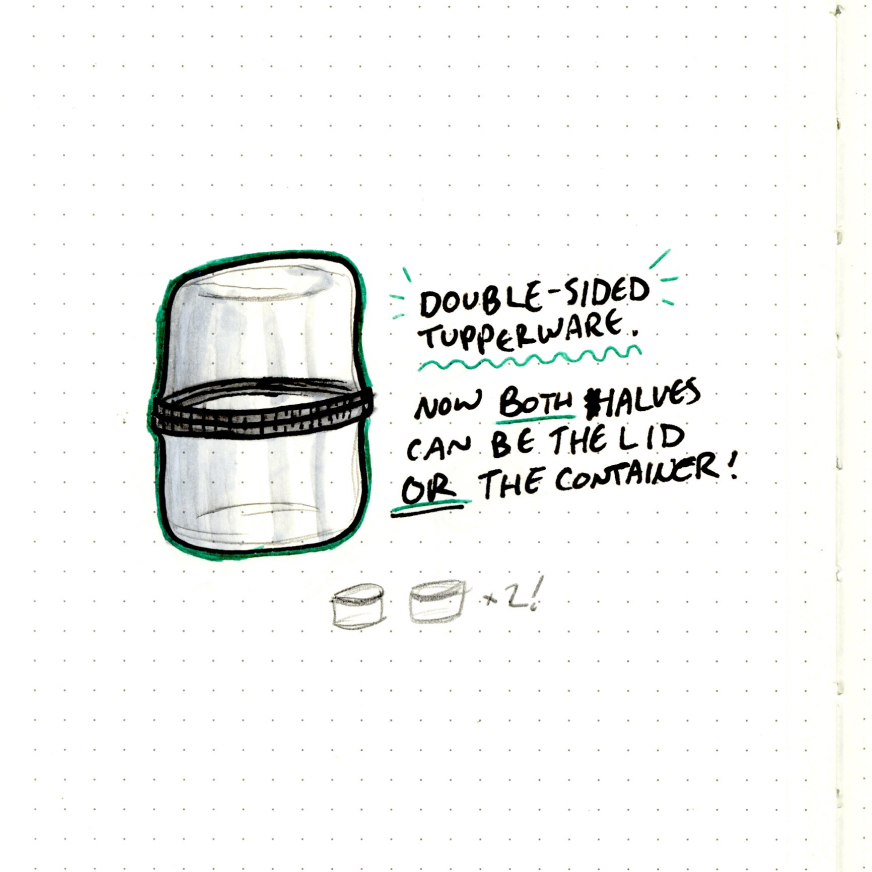 DOUBLE-SIDED
TUPPERWARE.
NOW BOTH HALVES
CAN BE THE LID
OR THE CONTAINER!
×2!